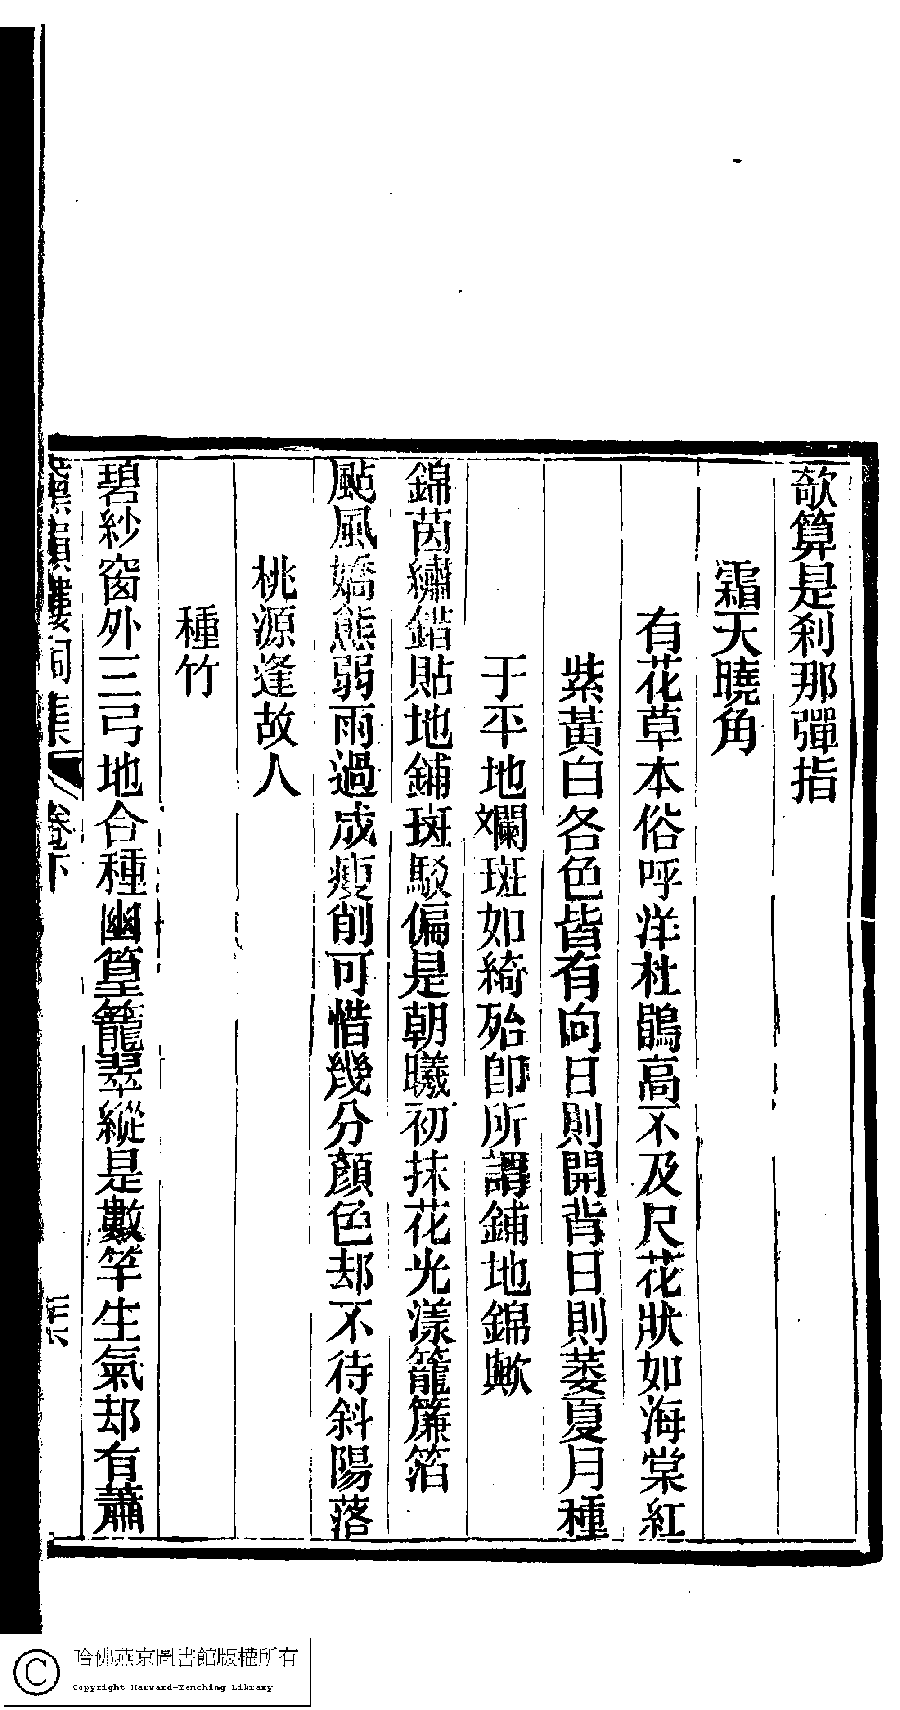 欹算是刹那彈指
霜天曉角
有花草本俗呼洋杜鵑高不及尺花狀如海棠紅
紫黃白各色皆有向日則開背日則萎夏月種
于平地斕斑如綺殆卽所謂鋪地錦歟
錦茵繡錯貼地鋪斑駁偏是朝曦初抹花光漾籠簾箔
颭風嬌態弱雨過成瘦削可惜幾分顏色却不待斜陽落
桃源逢故人
種竹
碧紗窗外三弓地合種幽篁籠翠縱是數竿生氣却有蕭
韻樓詞集 卷下
哈佛燕京圖書館版權所有
Copyright Harvard-Yenching Library